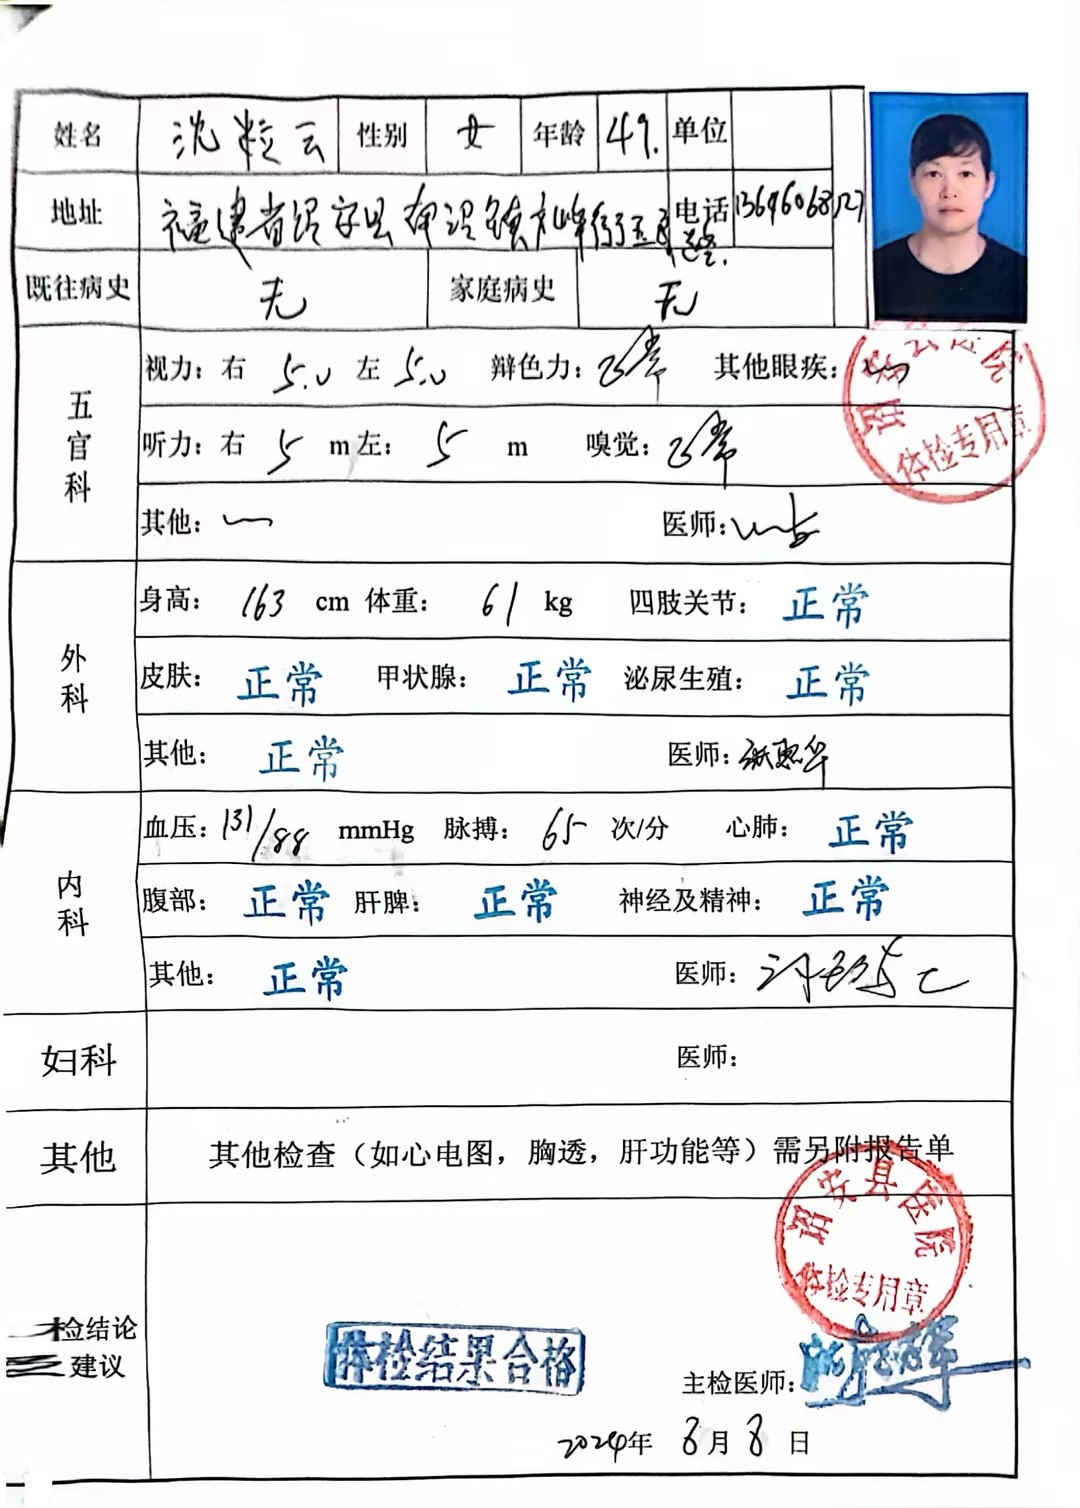 姓名 沈粒云 性别 女 年龄 49. 单位
地址 福建省诏安县 镇 电话 13696068127
既往病史 无 家庭病史 无
五官科
视力：右 5.0 左 5.0 辩色力：正常 其他眼疾：
听力：右 5 m左： 5 m 嗅觉：正常
其他：一 医师：
体检专用章
外科
身高： 163 cm 体重： 61 kg 四肢关节：正常
皮肤：正常 甲状腺：正常 泌尿生殖：正常
其他：正常 医师：
内科
血压：131/88 mmHg 脉搏：65 次/分 心肺：正常
腹部：正常 肝脾：正常 神经及精神：正常
其他：正常 医师：
妇科 医师：
其他 其他检查（如心电图，胸透，肝功能等）需另附报告单
诏安县医院
体检专用章
检结论
建议
体检结果合格
主检医师：
2024年 8月 8 日